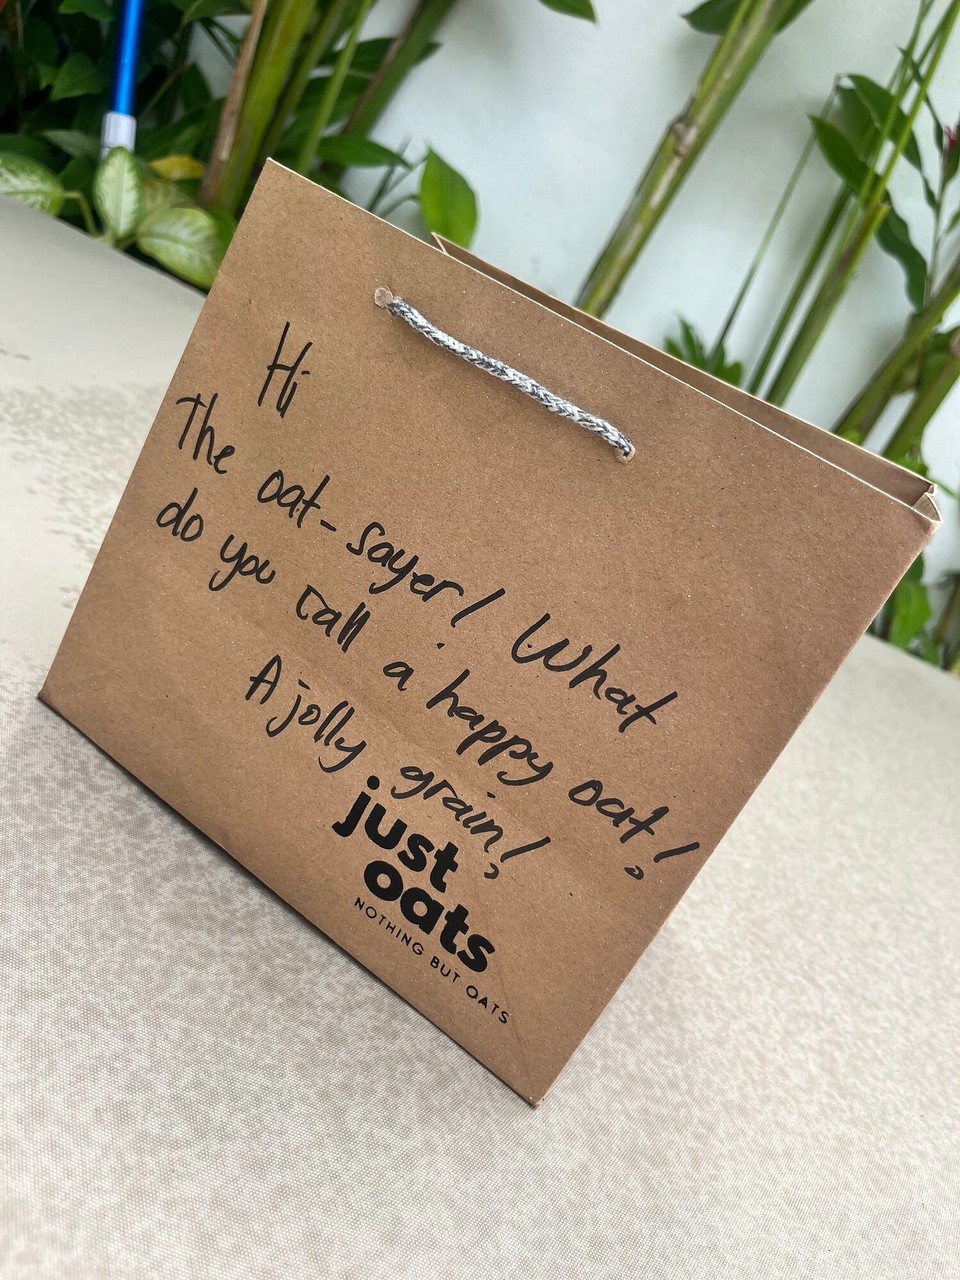 Hi
The oat-sayer! What
do you call a happy oat!
A jolly grain!
just
oats
NOTHING BUT OATS